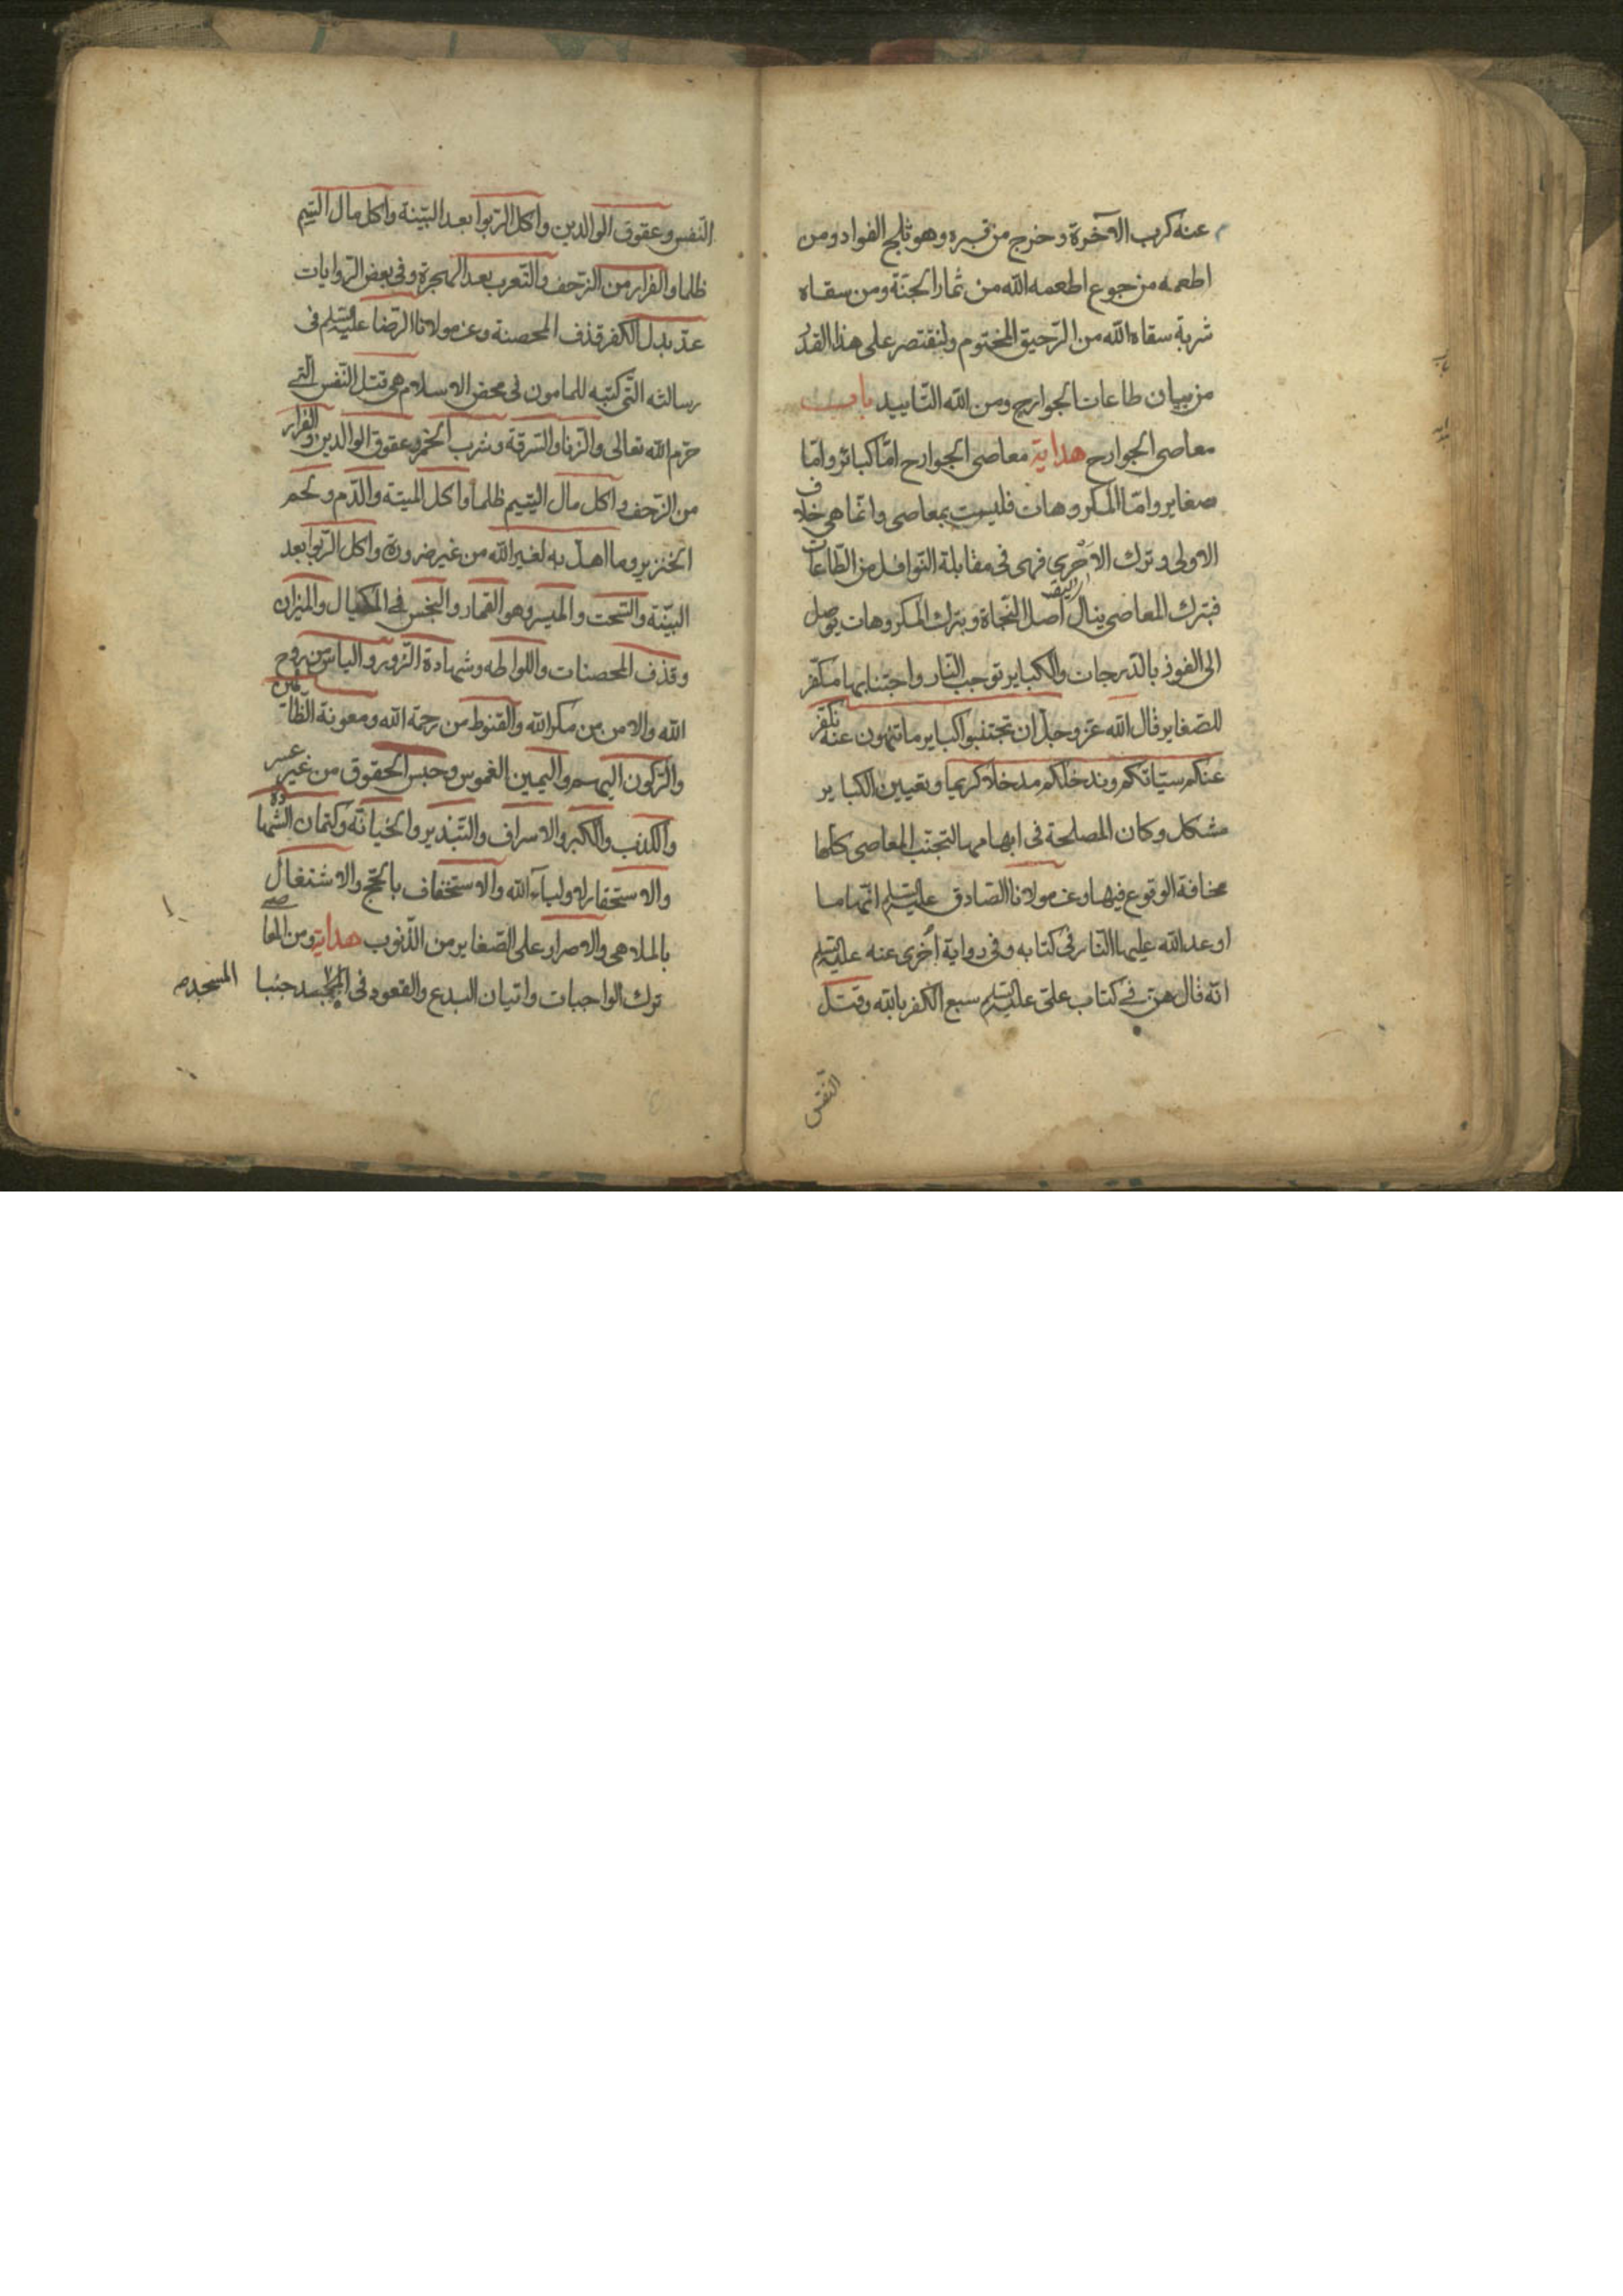 عنه كرب الآخرة وخرج من قبره وهو ثلج الفواد ومن
اطعمه من جوع اطعمه الله من ثمار الجنة ومن سقاه
شربة سقاه الله من الرّحيق المختوم ولنقتصر على هذا القدر
من بيان طاعات الجوارح ومن الله التاييد باب
معاصى الجوارح هداية معاصى الجوارح امّا كبائر وامّا
صغاير وامّا المكروهات فليست بمعاصى وانّما هى خلاف
الاولى وترك الاَحْرى فهى فى مقابلة النوافل من الطّاعات
فبترك المعاصى ينال اصل النّجاة وبترك المكروهات يوصل
الى الفوز بالدّرجات والكباير توجب النّار واجتنابها مكفّر
للصّغاير قال الله عزّ وجلّ ان تجتنبوا كباير ما تنهون عنه نكفّر
عنكم سيّاتكم وندخلكم مدخلا كريما وتعيين الكباير
مشكل وكان المصلحة فى ابهامها لتجتنب المعاصى كلّها
مخافة الوقوع فيها وعن مولانا الصّادق عليه السلم انّها ما
اوعد الله عليها النّار فى كتابه وفى رواية اُخرى عنه عليه السلم
انّه قال هنّ فى كتاب علىّ عليه السلم سبع الكفر بالله وقتل
النّفس
النّفس وعقوق الوالدين واكل الرّبوا بعد البيّنة واكل مال اليتيم
ظلما والفرار من الزّحف والتّعرب بعد الهجرة وفى بعض الرّوايات
عدّ بدل الكفر قذف المحصنة وعن مولانا الرّضا عليه السلم فى
رسالته الّتى كتبه للمامون فى محض الاسلام هى قتل النّفس الّتى
حرّم الله تعالى والزّنا والسّرقة وشرب الخمر وعقوق الوالدين والفرار
من الزّحف واكل مال اليتيم ظلما واكل الميتة والدّم ولحم
الخنزير وما اهلّ به لغير الله من غير ضرورة واكل الرّبوا بعد
البيّنة والسّحت والميسر وهو القمار والبخس فى المكيال والميزان
وقذف المحصنات واللواطه وشهادة الزّور والياس من روح
الله والامن من مكر الله والقنوط من رحمة الله ومعونة الظّالمين
والرّكون اليهم واليمين الغموس وحبس الحقوق من غير عسر
والكذب والكبر والاسراف والتّبذير والخيانة وكتمان الشّهادة
والاستحقار لاولياء الله والاستخفاف بالحجّ والاشتغال
بالملاهى والاصرار على الصّغاير من الذّنوب هداية ومن المعاصى
ترك الواجبات واتيان البدع والقعود فى المسجد جنبا
المسجد